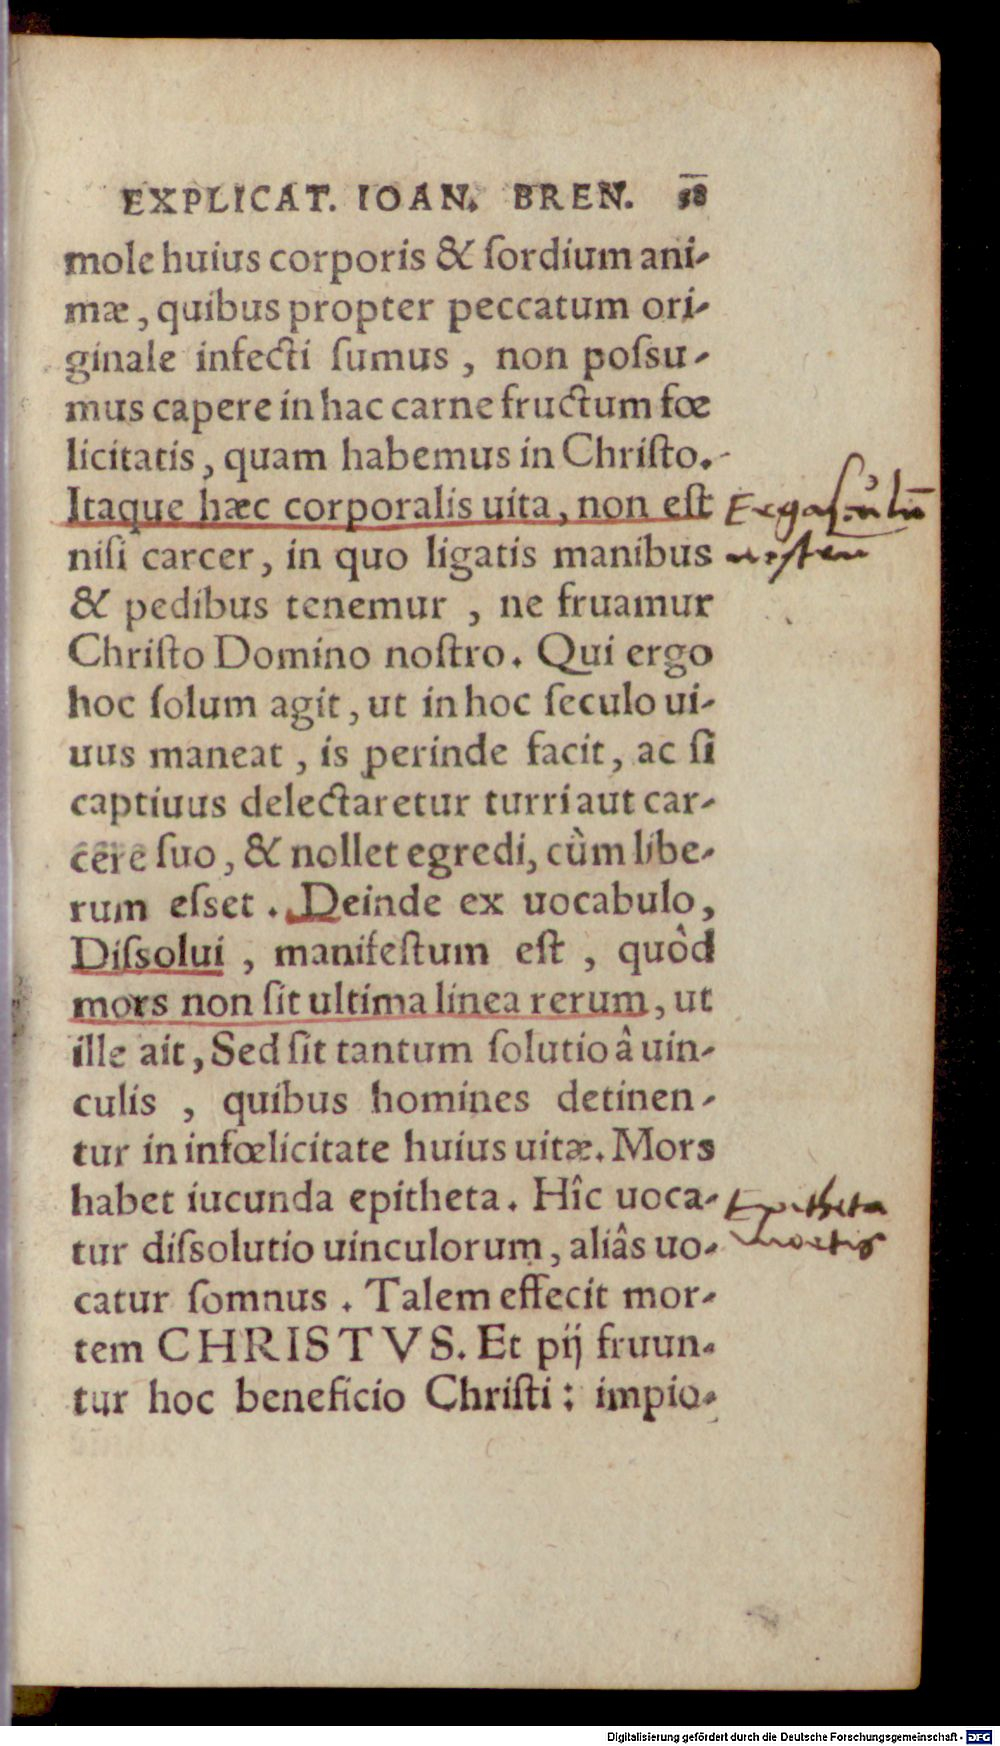 EXPLICAT. IOAN. BREN. 58
mole huius corporis & ſordium ani-
mæ, quibus propter peccatum ori-
ginale infecti ſumus, non poſsu-
mus capere in hac carne fructum fœ
licitatis, quam habemus in Chriſto.
Itaque hæc corporalis uita, non eſt
niſi carcer, in quo ligatis manibus
& pedibus tenemur, ne fruamur
Chriſto Domino noſtro. Qui ergo
hoc ſolum agit, ut in hoc ſeculo ui-
uus maneat, is perinde facit, ac ſi
captiuus delectaretur turri aut car-
cere ſuo, & nollet egredi, cùm libe-
rum eſset. Deinde ex uocabulo,
Diſsolui, manifeſtum eſt, quòd
mors non ſit ultima linea rerum, ut
ille ait, Sed ſit tantum ſolutio â uin-
culis, quibus homines detinen-
tur in infœlicitate huius uitæ. Mors
habet iucunda epitheta. Hîc uoca-
tur diſsolutio uinculorum, aliâs uo-
catur ſomnus. Talem effecit mor-
tem CHRISTVS. Et pij fruun-
tur hoc beneficio Chriſti: impio-
Epitheta
mortis
Digitalisierung gefördert durch die Deutsche Forschungsgemeinschaft - DFG